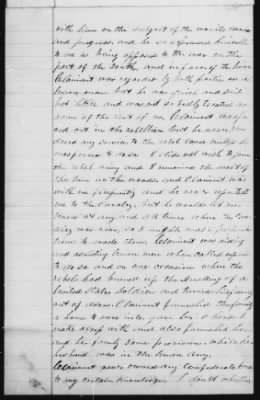 with him on the subject of the war its causes
and progress and he so expressed himself
to me as being opposed to the war on the
part of the South and in favor of the Union
Claimant was regarded by both parties as a
Union man but he was quiet and said
but little and was not so badly located as
some of the rest of us Claimant was
out in the rebellion but he never ren
dered any service to the rebel cause unless he
was forced to do so I did not wish to join
the rebel army and I remained the most of
the time in the woods and Claimant was
with me frequently and he never reported me
to the Cavalry, but he would let me
know at any and all times when the Ca
valry was near, so I might make prepara
tions to evade them, Claimant was aiding
and assisting Union men when called upon
to do so and on one occasion when the
rebels had burned up the dwelling of a
United States Soldier and turned his family
out of doors Claimant furnished the family
a home to move into, gave her a house to
make doing with and also furnished her
and her family some provisions, while her
husband was in the Union Army.
Claimant never owned any Confederate bonds
to my certain knowledge. I doubt whether